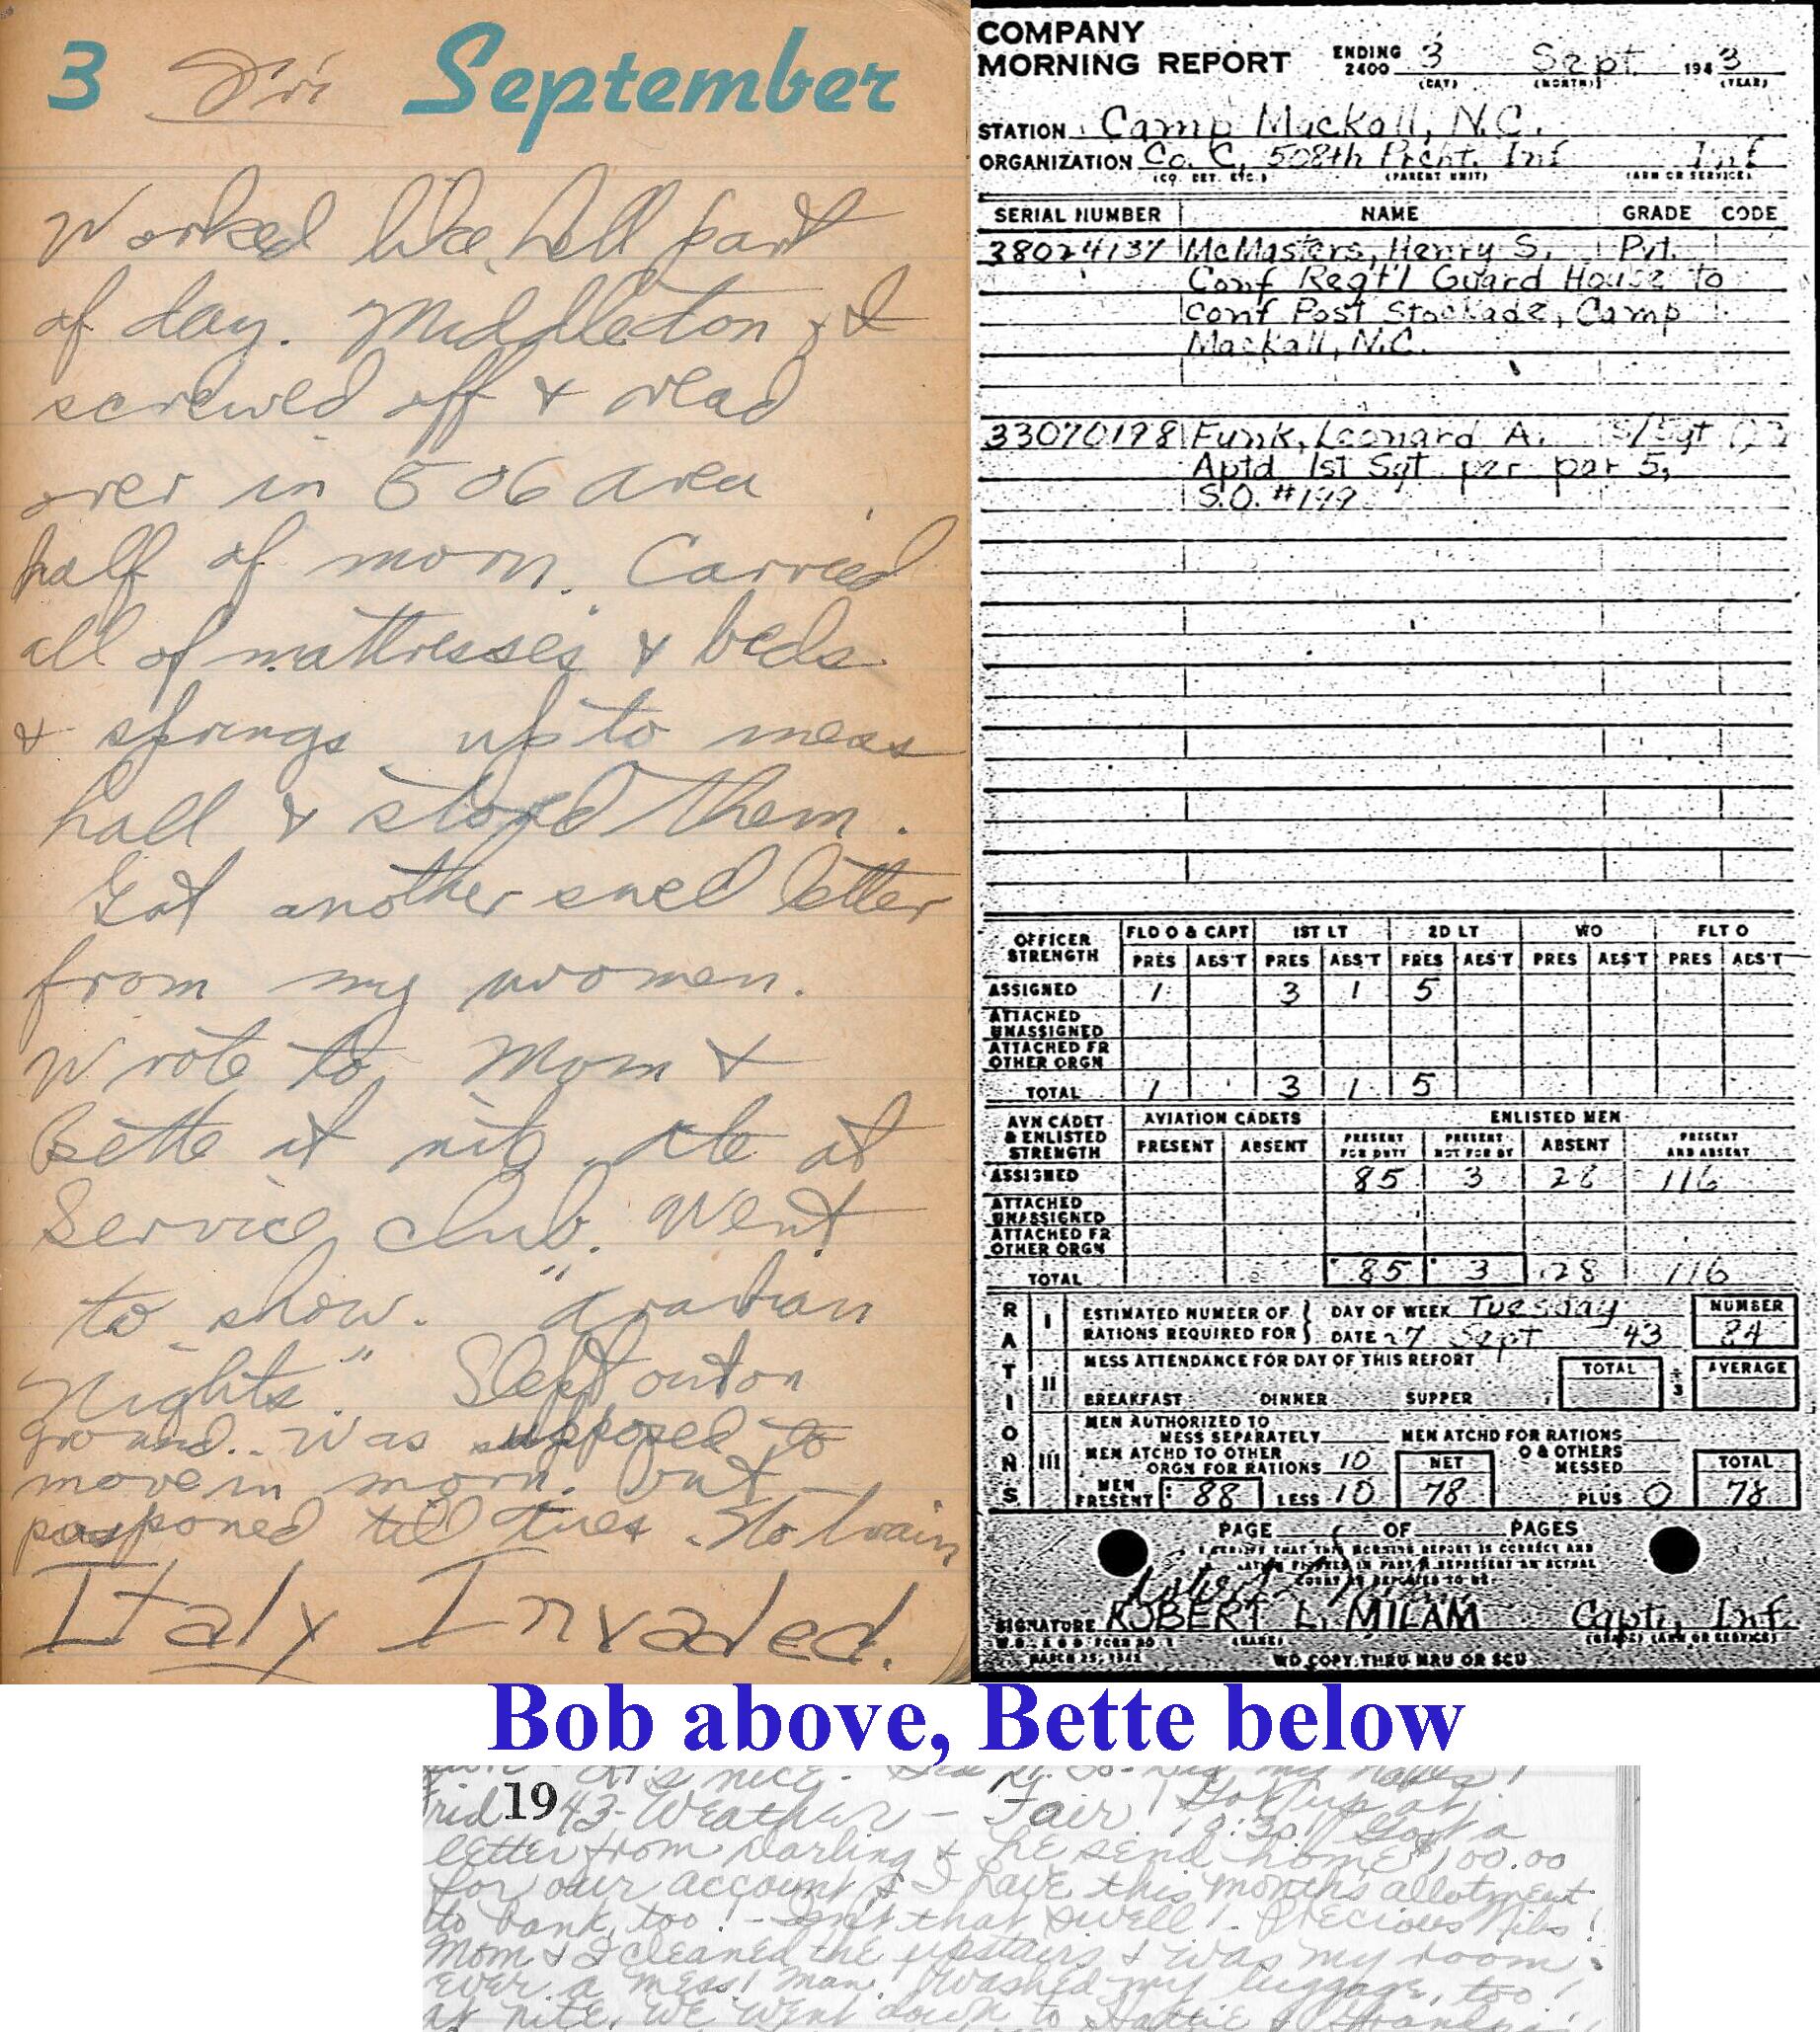 3 Fri September
Worked like hell part
of day. Middleton & I
screwed off & read
over in 506 area
half of morn. Carried
all of mattresses & beds
& springs up to mess
hall & stored them.
Got another swell letter
from my women.
Wrote to Mom &
Bette at nite. Ate at
Service Club. Went
to show. "Arabian
Nights". Slept out on
ground. Was supposed to
move in morn. but
postponed til Tues. No train
Italy Invaded.
COMPANY
MORNING REPORT ENDING 2400 3 Sept. 1943
(DAY) (MONTH) (YEAR)
STATION Camp Mackall, N.C.
ORGANIZATION Co. C, 508th Prcht. Inf Inf
(CO. DET. ETC.) (PARENT UNIT) (ARM OR SERVICE)
SERIAL NUMBER NAME GRADE CODE
38024137 McMasters, Henry S. Pvt.
Conf Reg't'l Guard House to
conf Post Stockade, Camp
Mackall, N.C.
33070198 Funk, Leonard A. S/Sgt
Aptd 1st Sgt per par 5,
S.O. #199
OFFICER STRENGTH FLD O & CAPT 1ST LT 2D LT WO FLT O
PRES ABS'T PRES ABS'T PRES ABS'T PRES ABS'T PRES ABS'T
ASSIGNED 1 3 1 5
ATTACHED UNASSIGNED
ATTACHED FR OTHER ORGN
TOTAL 1 3 1 5
AVN CADET & ENLISTED STRENGTH AVIATION CADETS ENLISTED MEN
PRESENT ABSENT PRESENT FOR DUTY PRESENT NOT FOR DY ABSENT PRESENT AND ABSENT
ASSIGNED 85 3 28 116
ATTACHED UNASSIGNED
ATTACHED FR OTHER ORGN
TOTAL 85 3 28 116
RATIONS
I ESTIMATED NUMBER OF RATIONS REQUIRED FOR DAY OF WEEK Tuesday NUMBER
DATE 27 Sept 43 84
II MESS ATTENDANCE FOR DAY OF THIS REPORT TOTAL ÷ 3 AVERAGE
BREAKFAST DINNER SUPPER
III MEN AUTHORIZED TO MESS SEPARATELY MEN ATCHD FOR RATIONS
MEN ATCHD TO OTHER ORGN FOR RATIONS 10 NET O & OTHERS MESSED TOTAL
MEN PRESENT 88 LESS 10 78 PLUS 0 78
PAGE OF PAGES
I CERTIFY THAT THIS MORNING REPORT IS CORRECT AND
SIGNATURE ROBERT L. MILAM Capt., Inf.
(NAME) (GRADE) (ARM OR SERVICE)
W.D., A.G.O. FORM NO. 1
MARCH 25, 1942 WD COPY THRU MRU OR SCU
Bob above, Bette below
It's nice. my nails!
Frid 1943 - Weather - Fair! Got up at
10:30! Got a
letter from Darling & he send home $100.00
for our account & I have this month's allotment
to bank, too! - Isn't that swell! - Precious Nibs!
Mom & I cleaned the upstairs & was my room
ever a mess! Man! Washed my luggage, too!
at nite, we went down to Hattie & Grandpa's